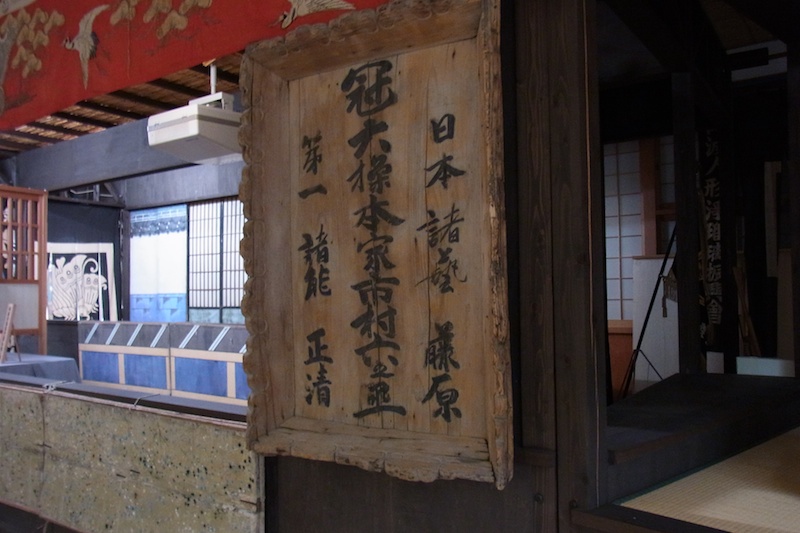 日本 諸藝 藤原
冠大操本家市村六之亟
第一 諸能 正清